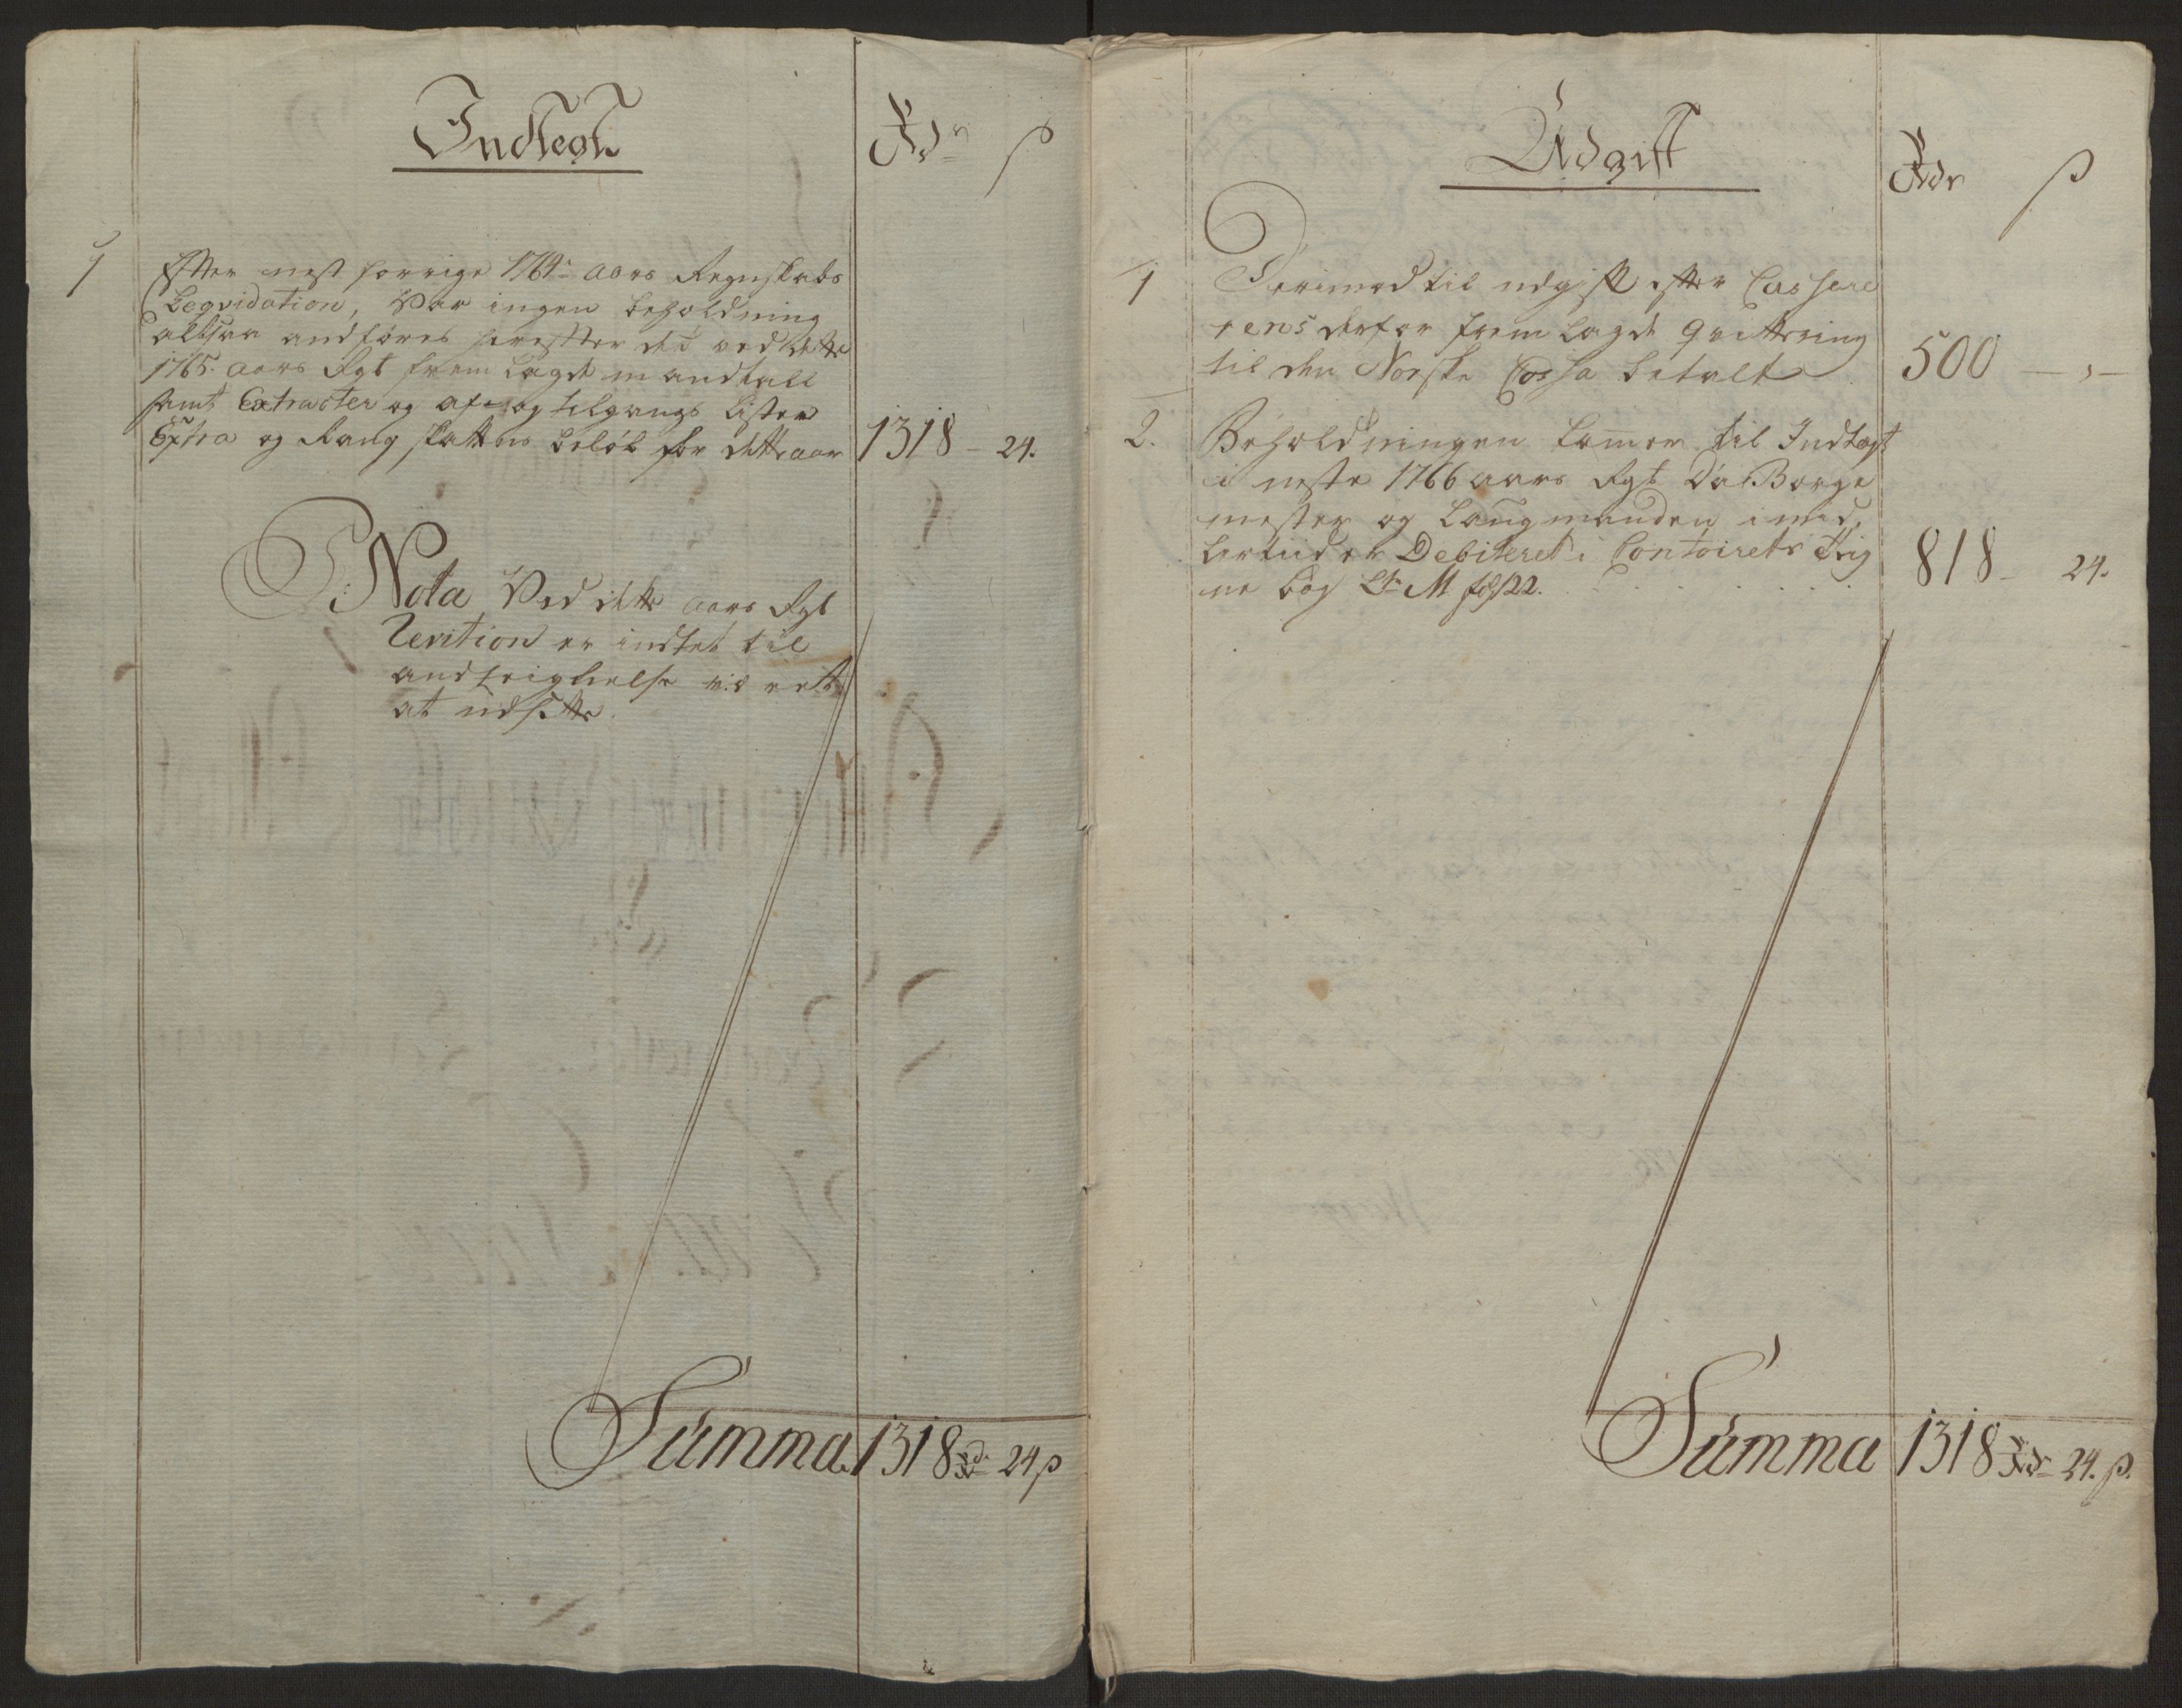 Indtegt
Rdr ß
1 Efter nest forrige 1764de aars Regnskabs
Leqvidation, Var ingen beholdning
altsaa andføres herefter det ved dette
1765. aars Rgb frem Lagde mandtall
samt Extracter og af- og tilgangs Lister
Extra og Rang skattens beløb for dette aar 1318 - 24.
Nota Ved dette aars Rgb
Revition er indtet til
andteignelse
at udsette.
Summa 1318 Rdr 24 ß
Udgift
Rdr ß
1 Derimod til udgift efter Cassere
rens derfor frem lagde qvittering
til den Norske Cassa betalt 500 - „ -
2. Beholdningen komer til Indtegt
i neste 1766 aars Rgb da Borge
mester og Laugmanden imid
lertiid er Debiteret i Contoirets
ne bog Ltr M fol 22. 818 - 24.
Summa 1318 Rdr 24. ß.